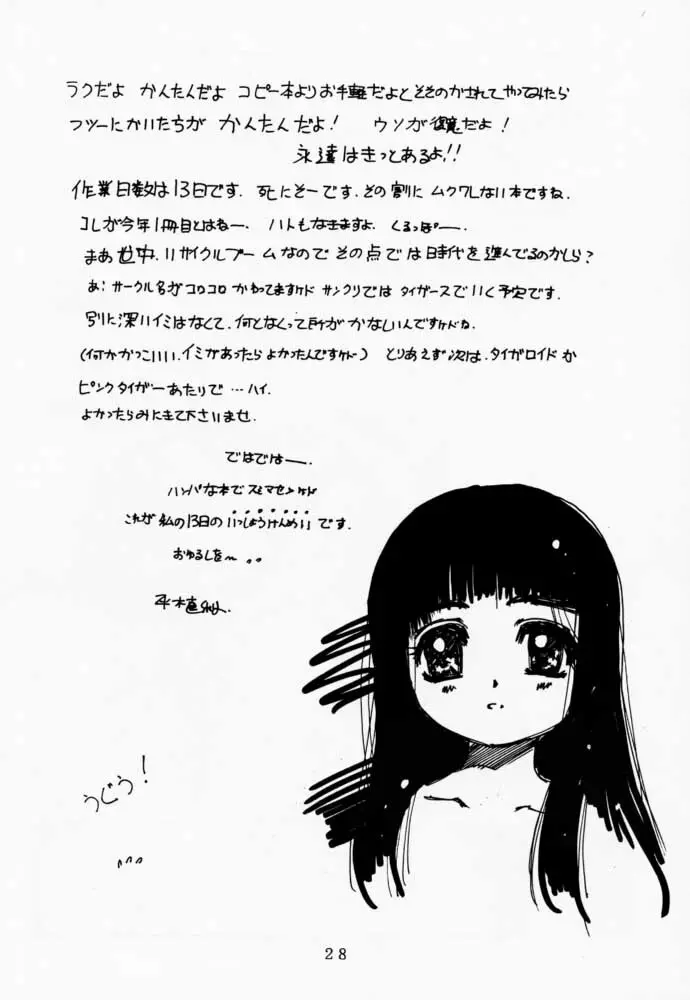 ラクだよ かんたんだよ コピー本よりお手軽だよとそそのかされてやってみたら
フツーにかいたちが かんたんだよ! ウソが 覚だよ!
永遠はきっとあるよ!!
作業日数は13日です. 死にそーです. その割に ムクワレない本ですね.
コレが今年1冊目とはねー. ハトもなきますよ. くるっぽー.
まあ世中.リサイクルブームなので その点では時代を進んでるのかしら?
あ! サークル名がコロコロ かわってますけド サンクリでは タイガースでいく予定です.
別に深イミはなくて. 何となくって所が かなしいんですけどね.
(何かかっこいい.イミがあったら よかったんですけド) とりあえず次は.タイガロイド か
ピンクタイガーあたりで …ハイ.
よかったらみにきて下さいませ.
ではではー.
ハンパな本でスミマセンけド
これが 私の13日の いっしょうけんめい です.
おゆるしを〜 ..
うぐう!
28